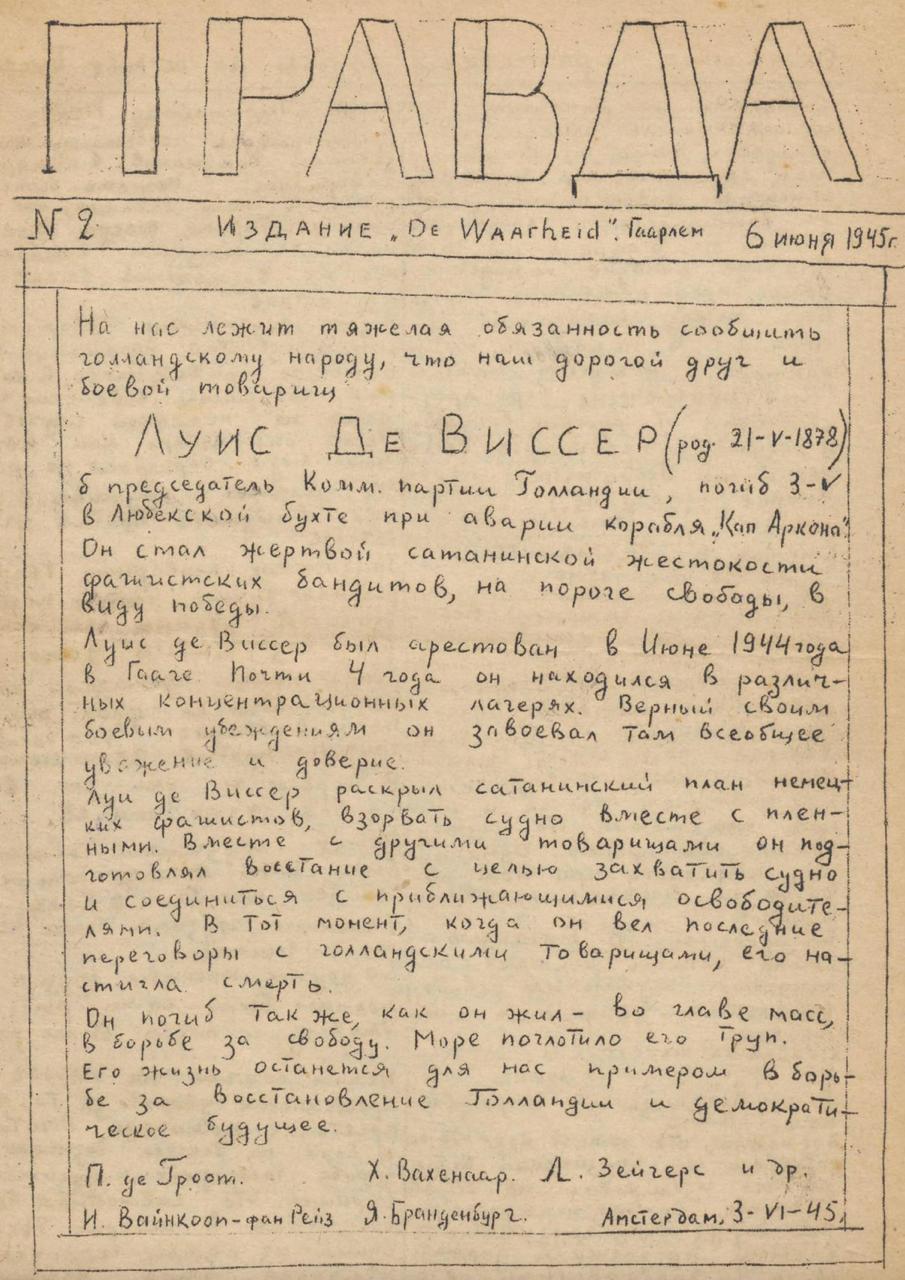 ПРАВДА
N 2 ИЗДАНИЕ „DE WAArheid”. Гаарлем 6 июня 1945г.
На нас лежит тяжелая обязанность сообщить
голландскому народу, что наш дорогой друг и
боевой товарищ
ЛУИС ДЕ ВИССЕР (род. 21-V-1878)
б председатель Комм. партии Голландии, погиб 3-V
в Любекской бухте при аварии корабля „Кап Аркона”.
Он стал жертвой сатанинской жестокости
фашистских бандитов, на пороге свободы, в
виду победы.
Луис де Виссер был арестован в Июне 1944 года
в Гааге Почти 4 года он находился в различ-
ных концентрационных лагерях. Верный своим
боевым убеждениям он завоевал там всеобщее
уважение и доверие.
Луи де Виссер раскрыл сатанинский план немец-
ких фашистов, взорвать судно вместе с плен-
ными. Вместе с другими товарищами он под-
готовлял восстание с целью захватить судно
и соединиться с приближающимися освободите-
лями. В тот момент, когда он вел последние
переговоры с голландскими товарищами, его на-
стигла смерть.
Он погиб так же, как он жил - во главе масс,
в борьбе за свободу. Море поглотило его труп.
Его жизнь останется для нас примером в борь-
бе за восстановление Голландии и демократи-
ческое будущее.
П. де Гроот. Х. Вахенаар. Л. Зейгерс и др.
И. Вайнкооп-фан Рейз Я. Бранденбург. Амстердам, 3-VI-45.